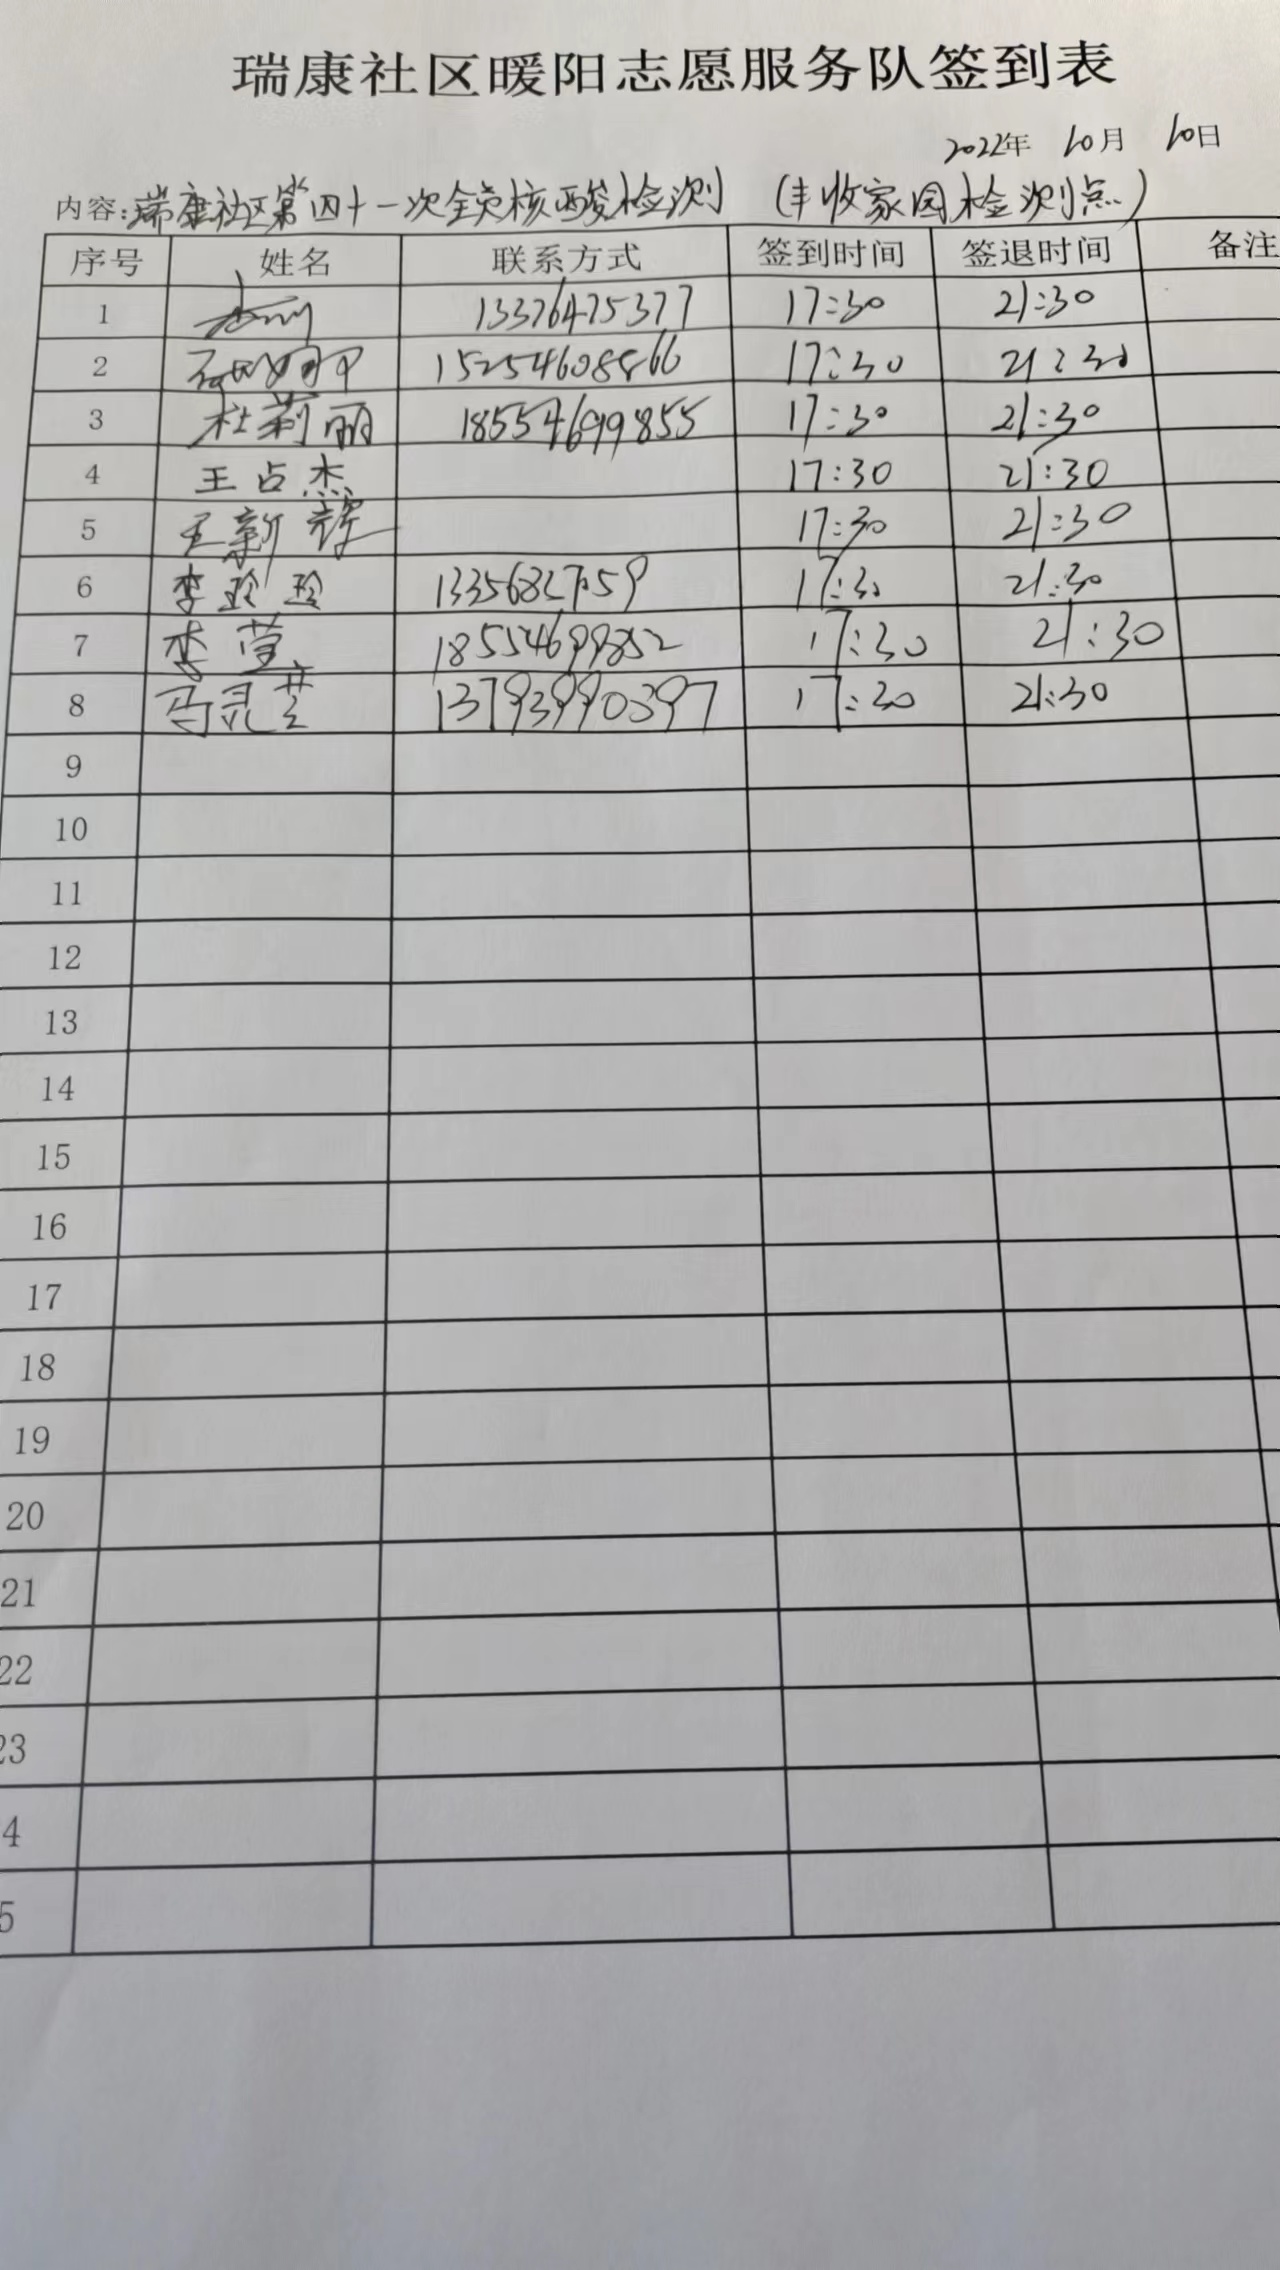 瑞康社区暖阳志愿服务队签到表
2022年 10月 10日
内容:瑞康社区第四十一次全员核酸检测 (丰收家园检测点)
序号 姓名 联系方式 签到时间 签退时间 备注
1 13376475377 17:30 21:30
2 15254608866 17:30 21:30
3 杜莉丽 18554699855 17:30 21:30
4 王占杰 17:30 21:30
5 王新辉 17:30 21:30
6 李玲玲 17:30 21:30
7 李莹 18554699852 17:30 21:30
8 马灵芝 13793990397 17:30 21:30
9
10
11
12
13
14
15
16
17
18
19
20
21
22
23
4
5